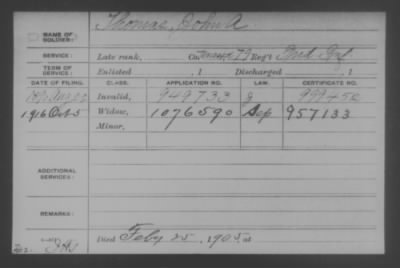 NAME OF SOLDIER: Thomas, John A
SERVICE: Late rank, Co. 79 Reg't Ind Inf
TERM OF SERVICE: Enlisted , 1 Discharged , 1
DATE OF FILING. CLASS. APPLICATION NO. LAW. CERTIFICATE NO.
Invalid, 949733
1916 Oct 5 Widow, 1076590 Sep 957133
Minor,
ADDITIONAL SERVICES:
REMARKS:
Died Feby 25, 1905, at